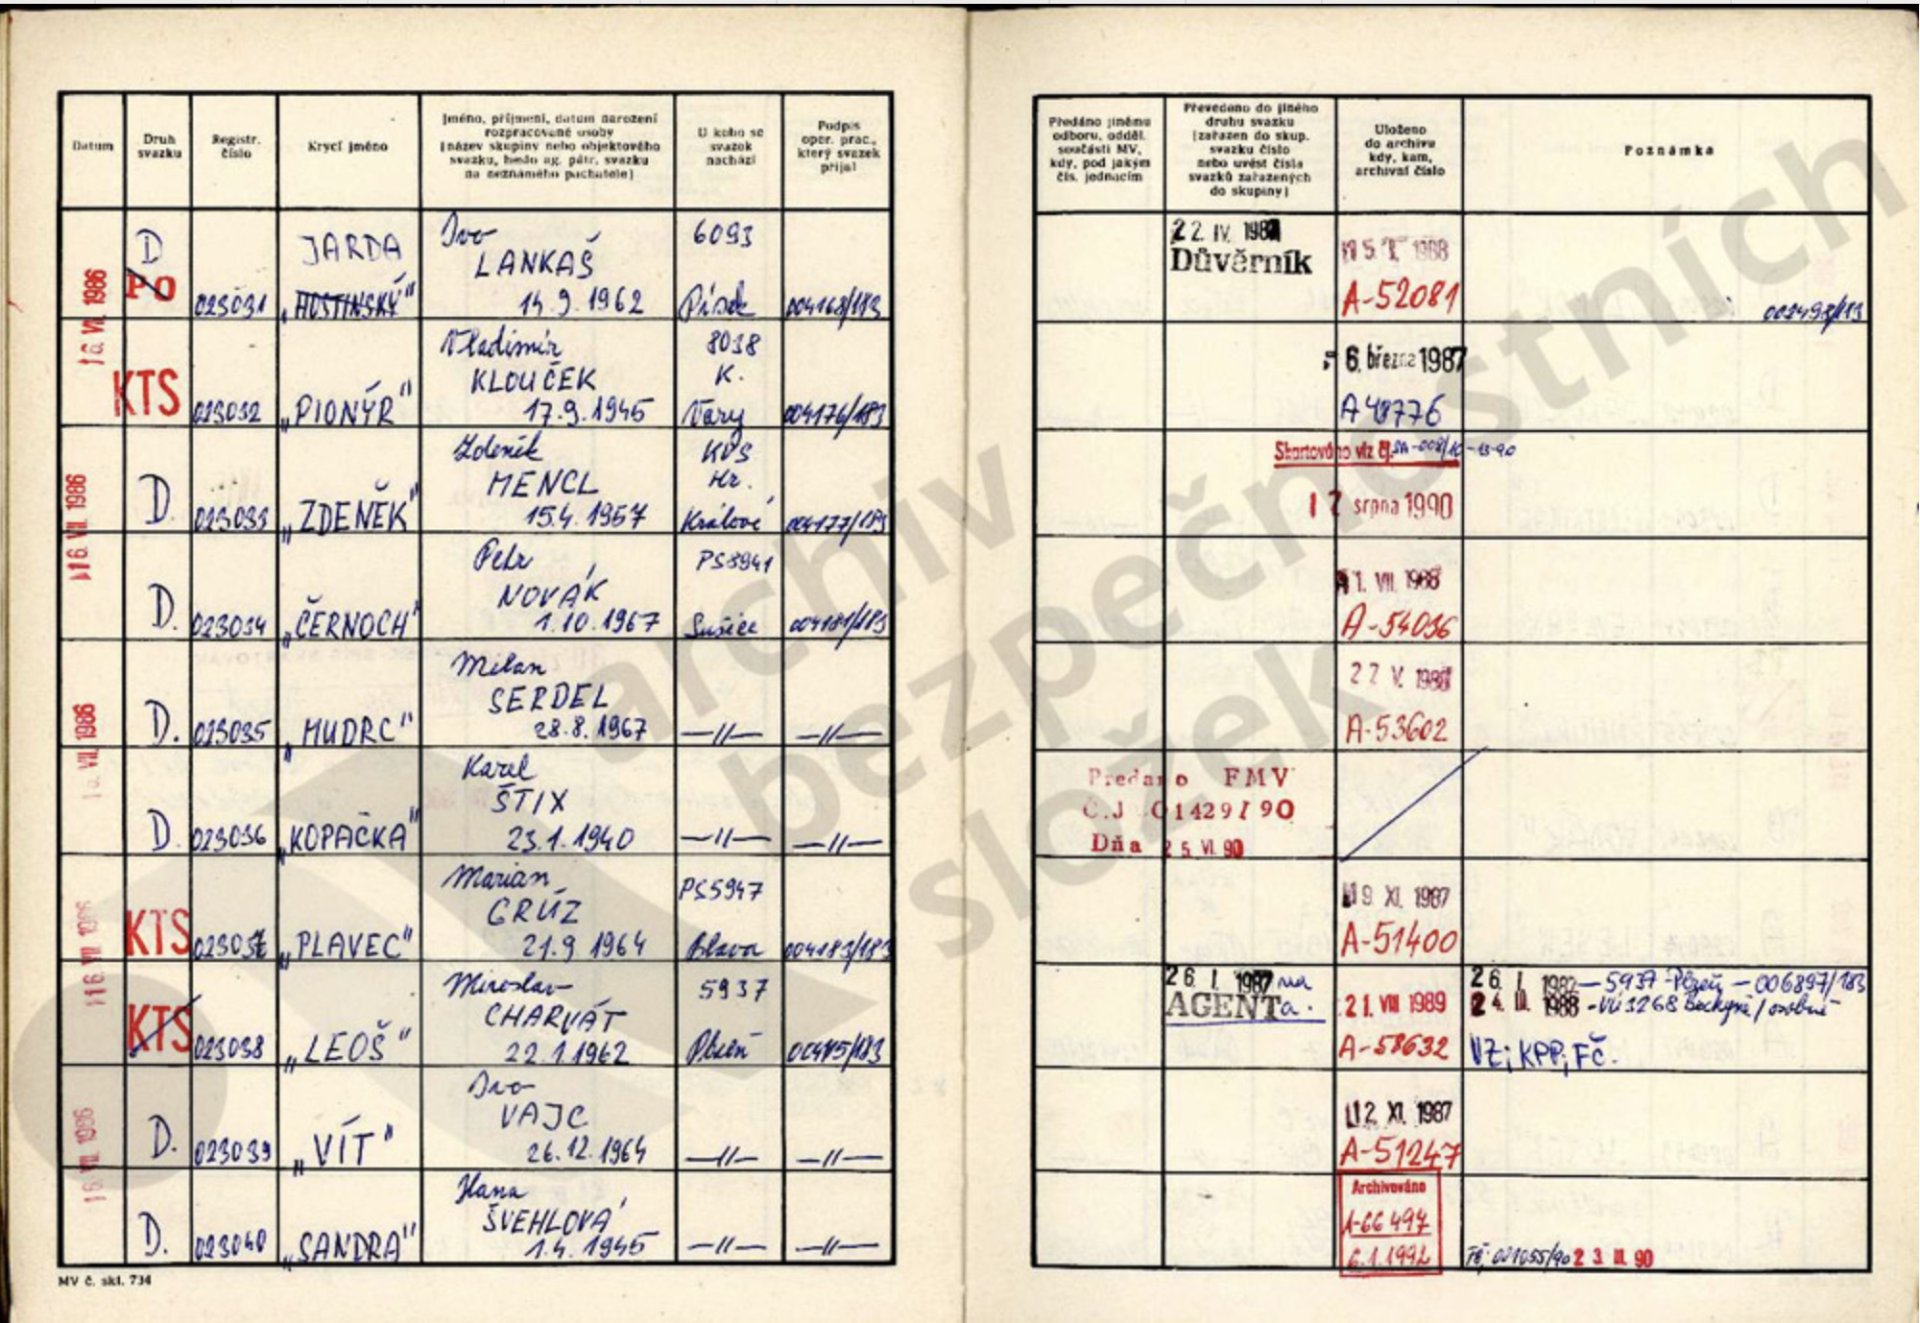 Datum
Druh svazku
Registr. číslo
Krycí jméno
Jméno, příjmení, datum narození
rozpracované osoby
(název skupiny nebo objektového
svazku, heslo ag. pátr. svazku
na neznámého pachatele)
U koho se svazek nachází
Podpis oper. prac., který svazek přijal
Předáno jinému
odboru, odděl.
součásti MV,
kdy, pod jakým
čís. jednacím
Převedeno do jiného
druhu svazku
(zařazen do skup.
svazku číslo
nebo uvést čísla
svazků zařazených
do skupiny)
Uloženo
do archivu
kdy, kam,
archivní číslo
Poznámka
16. VII. 1986
D
PO
023031
JARDA
„HOSTINSKÝ"
Ivo
LANKAŠ
14.9.1962
6093
Písek
004168/183
22. IV. 1987
Důvěrník
1988
A-52081
KTS
023032
„PIONÝR"
Vladimír
KLOUČEK
17.9.1945
8038
K.
Vary
004176/183
6. března 1987
A 48776
16. VII. 1986
D.
023033
„ZDENĚK"
Zdeněk
MENCL
15.4.1957
KPS
Hr.
Králové
004177/183
Skartováno viz čj.
17 srpna 1990
D.
023034
„ČERNOCH"
Petr
NOVÁK
1.10.1967
PS8941
Sušice
004181/183
1. VII. 1988
A-54036
VII. 1986
D.
023035
„MUDRC"
Milan
SERDEL
28.8.1967
—//—
—//—
27 V. 1988
A-53602
D.
023036
„KOPAČKA"
Karel
ŠTIX
23.1.1940
—//—
—//—
Predano FMV
Č.J 01429/90
Dňa 25. VI. 90
16. VII. 1986
KTS
023037
„PLAVEC"
Marián
GRÚZ
21.9.1964
PS5947
Blava
004183/183
19 XI. 1987
A-51400
KTS
023038
„LEOŠ"
Miroslav
CHARVÁT
22.1.1962
5937
Plzeň
26. I. 1987 na
AGENTa.
21. VIII 1989
A-58632
26. I. 1987 — 5937 Plzeň — 006897/183
24. III. 1988 - VÚ 3268 Bechyně / osobně
VZ; KPP; FČ.
16. VII. 1986
D.
023039
„VÍT"
Ivo
VAJC
26.12.1964
—//—
—//—
12. XI. 1987
A-51247
D.
023040
„SANDRA"
Hana
ŠVEHLOVÁ
1.4.1945
—//—
—//—
Archivováno
A-66 497
6.1.1992
001055/90 23. III. 90
MV č. skl. 734
archiv
bezpečnostních
složek